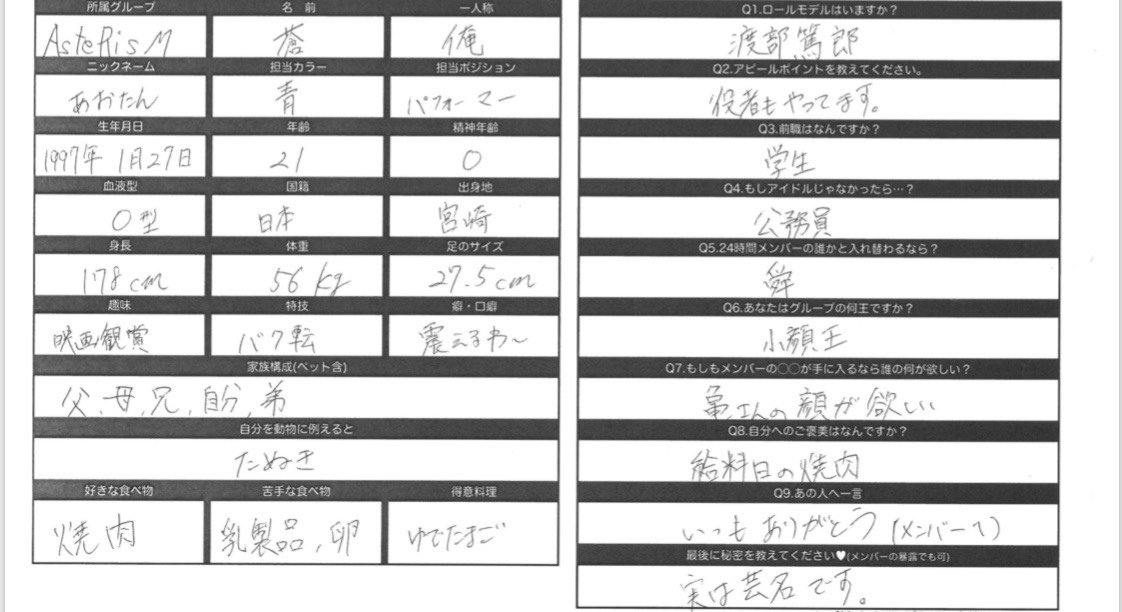 所属グループ 名前 一人称
AsteRisM 蒼 俺
ニックネーム 担当カラー 担当ポジション
あおたん 青 パフォーマー
生年月日 年齢 精神年齢
1997年 1月27日 21 0
血液型 国籍 出身地
O型 日本 宮崎
身長 体重 足のサイズ
178cm 56kg 27.5cm
趣味 特技 癖・口癖
映画観賞 バク転 震えるわ〜
家族構成(ペット含)
父、母、兄、自分、弟
自分を動物に例えると
たぬき
好きな食べ物 苦手な食べ物 得意料理
焼肉 乳製品、卵 ゆでたまご
Q1.ロールモデルはいますか？
渡部篤郎
Q2.アピールポイントを教えてください。
役者もやってます。
Q3.前職はなんですか？
学生
Q4.もしアイドルじゃなかったら…？
公務員
Q5.24時間メンバーの誰かと入れ替わるなら？
舜
Q6.あなたはグループの何王ですか？
小顔王
Q7.もしもメンバーの◯◯が手に入るなら誰の何が欲しい？
亀さんの顔が欲しい
Q8.自分へのご褒美はなんですか？
給料日の焼肉
Q9.あの人へ一言
いつもありがとう(メンバーへ)
最後に秘密を教えてください♥(メンバーの暴露でも可)
実は芸名です。